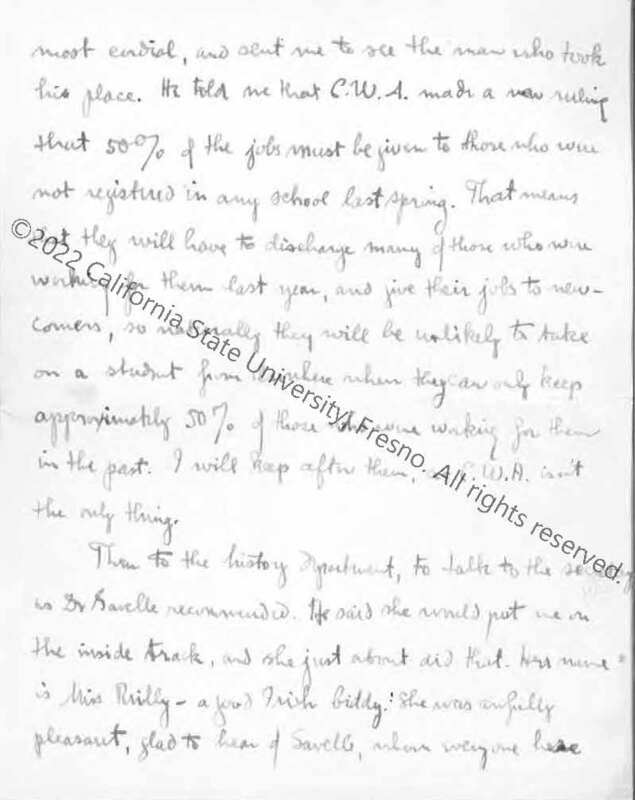 most cordial, and sent me to see the man who took
his place. He told me that C.W.A. made a new ruling
that 50% of the jobs must be given to those who were
not registered in any school last spring. That means
that they will have to discharge many of those who were
working for them last year, and give their jobs to new-
comers, so naturally they will be unlikely to take
on a student from elsewhere when they can only keep
approximately 50% of those who were working for them
in the past. I will keep after them, C.W.A. isn't
the only thing.
Then to the history department, to talk to the
as Dr Savelle recommended. He said she would put me on
the inside track, and she just about did that. Her name
is Miss Reilly - a good Irish biddy! She was awfully
pleasant, glad to hear of Savelle, whom everyone here
©2022 California State University, Fresno. All rights reserved.